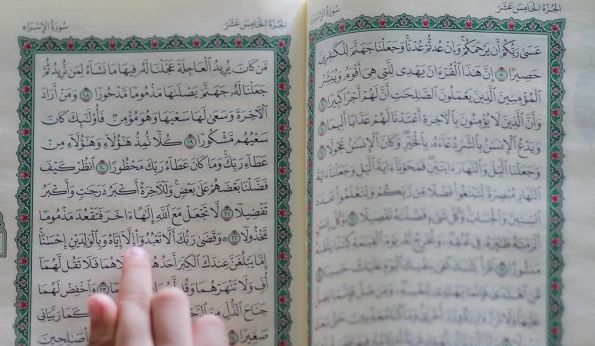 الجُزءُ الخَامِسَ عَشَرَ
سُورَةُ الإِسۡرَاءِ
عَسَىٰ رَبُّكُمۡ أَن يَرۡحَمَكُمۡۚ وَإِنۡ عُدتُّمۡ عُدۡنَاۚ وَجَعَلۡنَا جَهَنَّمَ لِلۡكَٰفِرِينَ
حَصِيرًا ٨ إِنَّ هَٰذَا ٱلۡقُرۡءَانَ يَهۡدِي لِلَّتِي هِيَ أَقۡوَمُ وَيُبَشِّرُ
ٱلۡمُؤۡمِنِينَ ٱلَّذِينَ يَعۡمَلُونَ ٱلصَّٰلِحَٰتِ أَنَّ لَهُمۡ أَجۡرٗا كَبِيرٗا ٩
وَأَنَّ ٱلَّذِينَ لَا يُؤۡمِنُونَ بِٱلۡأٓخِرَةِ أَعۡتَدۡنَا لَهُمۡ عَذَابًا أَلِيمٗا ١٠
وَيَدۡعُ ٱلۡإِنسَٰنُ بِٱلشَّرِّ دُعَآءَهُۥ بِٱلۡخَيۡرِۖ وَكَانَ ٱلۡإِنسَٰنُ عَجُولٗا ١١
وَجَعَلۡنَا ٱلَّيۡلَ وَٱلنَّهَارَ ءَايَتَيۡنِۖ فَمَحَوۡنَآ ءَايَةَ ٱلَّيۡلِ وَجَعَلۡنَآ ءَايَةَ
ٱلنَّهَارِ مُبۡصِرَةٗ لِّتَبۡتَغُواْ فَضۡلٗا مِّن رَّبِّكُمۡ وَلِتَعۡلَمُواْ عَدَدَ
ٱلسِّنِينَ وَٱلۡحِسَابَۚ وَكُلَّ شَيۡءٖ فَصَّلۡنَٰهُ تَفۡصِيلٗا ١٢ وَكُلَّ إِنسَٰنٍ
أَلۡزَمۡنَٰهُ طَٰٓئِرَهُۥ فِي عُنُقِهِۦۖ وَنُخۡرِجُ لَهُۥ يَوۡمَ ٱلۡقِيَٰمَةِ كِتَٰبٗا يَلۡقَىٰهُ
مَنشُورًا ١٣ ٱقۡرَأۡ كِتَٰبَكَ كَفَىٰ بِنَفۡسِكَ ٱلۡيَوۡمَ عَلَيۡكَ حَسِيبٗا ١٤
مَّنِ ٱهۡتَدَىٰ فَإِنَّمَا يَهۡتَدِي لِنَفۡسِهِۦۖ
الجُزءُ الخَامِسَ عَشَرَ
سُورَةُ الإِسۡرَاءِ
مَّن كَانَ يُرِيدُ ٱلۡعَاجِلَةَ عَجَّلۡنَا لَهُۥ فِيهَا مَا نَشَآءُ لِمَن نُّرِيدُ ثُمَّ
جَعَلۡنَا لَهُۥ جَهَنَّمَ يَصۡلَىٰهَا مَذۡمُومٗا مَّدۡحُورٗا ١٨ وَمَنۡ أَرَادَ
ٱلۡأٓخِرَةَ وَسَعَىٰ لَهَا سَعۡيَهَا وَهُوَ مُؤۡمِنٞ فَأُوْلَٰٓئِكَ كَانَ
سَعۡيُهُم مَّشۡكُورٗا ١٩ كُلّٗا نُّمِدُّ هَٰٓؤُلَآءِ وَهَٰٓؤُلَآءِ مِنۡ
عَطَآءِ رَبِّكَۚ وَمَا كَانَ عَطَآءُ رَبِّكَ مَحۡظُورًا ٢٠ ٱنظُرۡ كَيۡفَ
فَضَّلۡنَا بَعۡضَهُمۡ عَلَىٰ بَعۡضٖۚ وَلَلۡأٓخِرَةُ أَكۡبَرُ دَرَجَٰتٖ وَأَكۡبَرُ
تَفۡضِيلٗا ٢١ لَّا تَجۡعَلۡ مَعَ ٱللَّهِ إِلَٰهًا ءَاخَرَ فَتَقۡعُدَ مَذۡمُومٗا
مَّخۡذُولٗا ٢٢ وَقَضَىٰ رَبُّكَ أَلَّا تَعۡبُدُوٓاْ إِلَّآ إِيَّاهُ وَبِٱلۡوَٰلِدَيۡنِ إِحۡسَٰنًاۚ
إِمَّا يَبۡلُغَنَّ عِندَكَ ٱلۡكِبَرَ أَحَدُهُمَآ كِلَاهُمَا فَلَا تَقُل لَّهُمَآ
أُفّٖ وَلَا تَنۡهَرۡهُمَا وَقُل وَٱخۡفِضۡ لَهُمَا
جَنَاحَ ٱلذُّلِّ مِنَ كَمَا رَبَّيَانِي
صَغِيرٗا